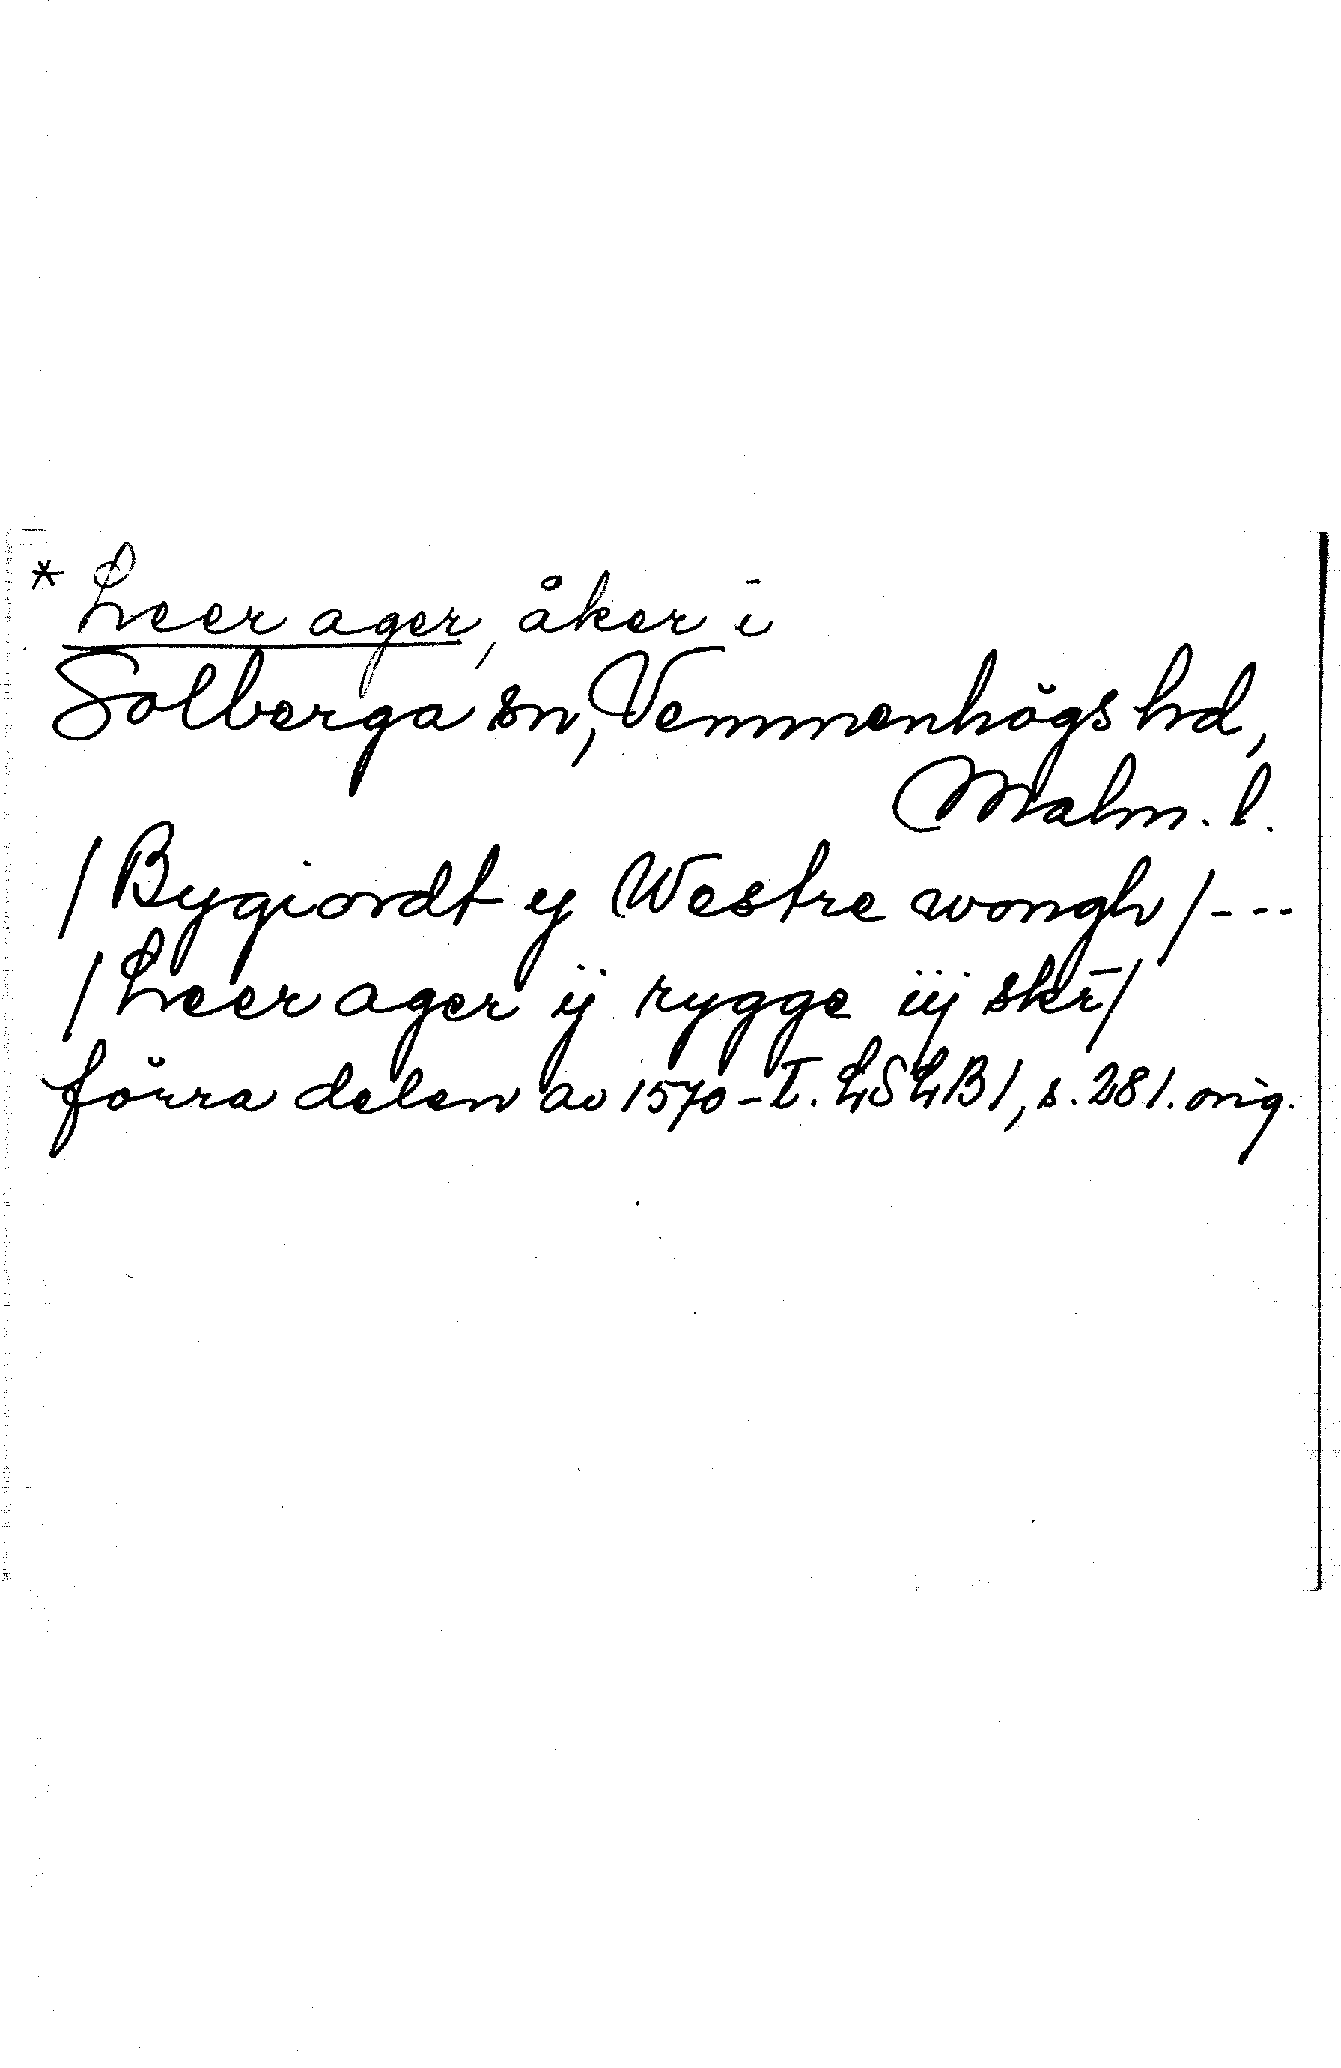 * Leer ager, åker i
Solberga sn, Vemmenhögs hd,
Malm. l.
/Bygiordt ej Westre wongh/ ---
/Leer ager ij rygge iij skr̄/
förra delen av 1570-t. LSLB1, s. 281. orig.